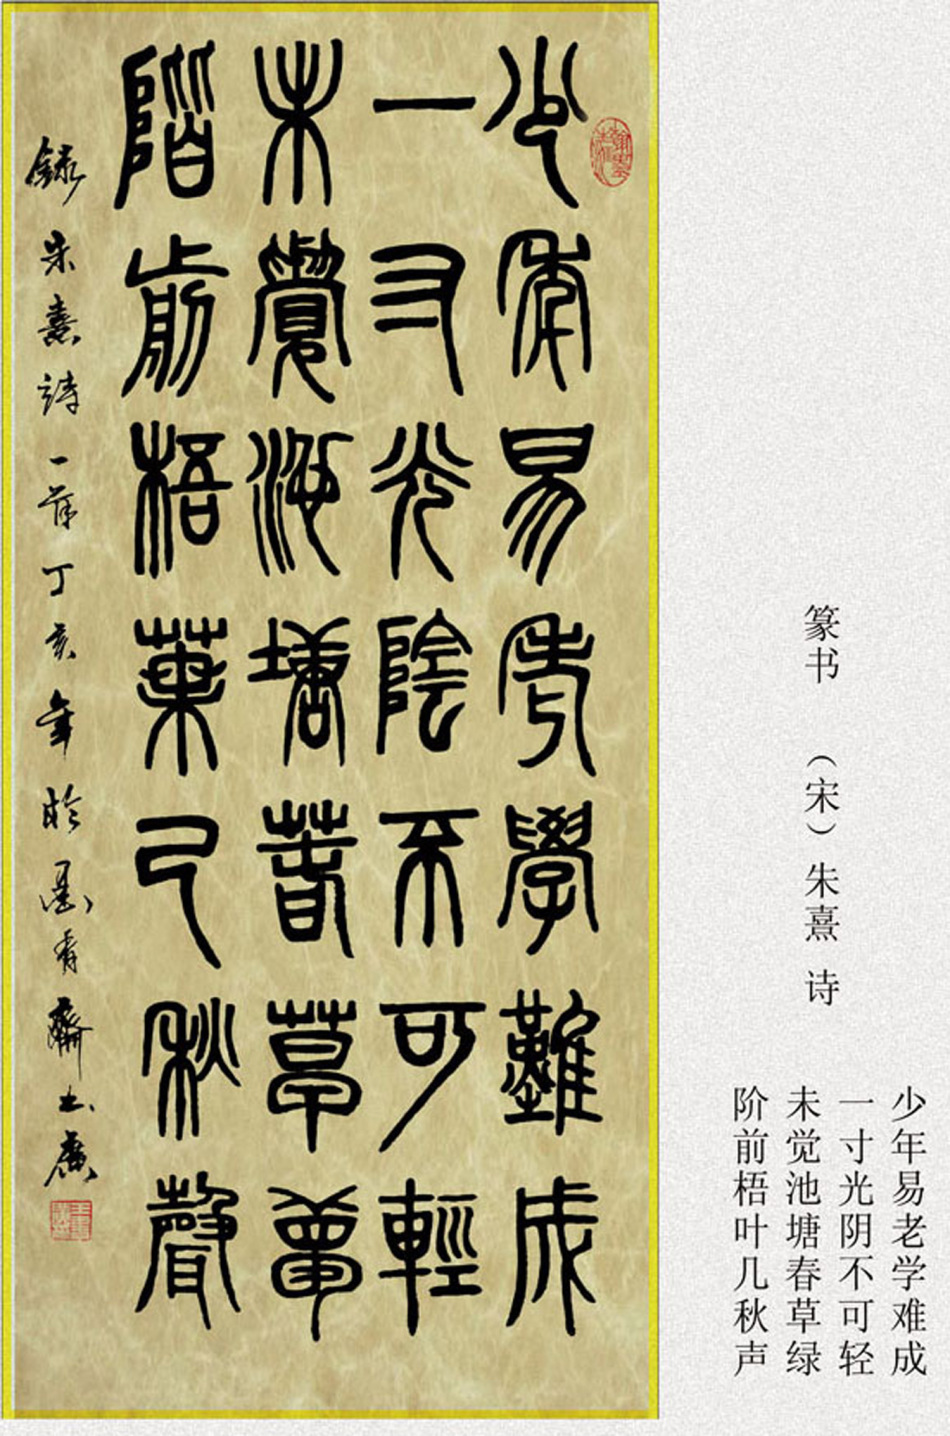 少年易老學難成
一寸光陰不可輕
未覺池塘春草
階前梧葉已秋聲
錄朱熹詩一首丁亥年於墨香齋
篆书 （宋）朱熹 诗
少年易老学难成
一寸光阴不可轻
未觉池塘春草绿
阶前梧叶几秋声